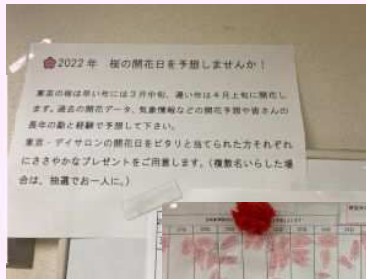 2022年 桜の開花日を予想しませんか！
東京の桜は早い年には3月中旬、遅い年は4月上旬に開花し
ます。過去の開花データ、気象情報などの開花予想や皆さんの
長年の勘と経験で予想して下さい。
東京・デイサロンの開花日をピタリと当てられた方それぞれ
にささやかなプレゼントをご用意します。（複数名いらした場
合は、抽選でお一人に。）